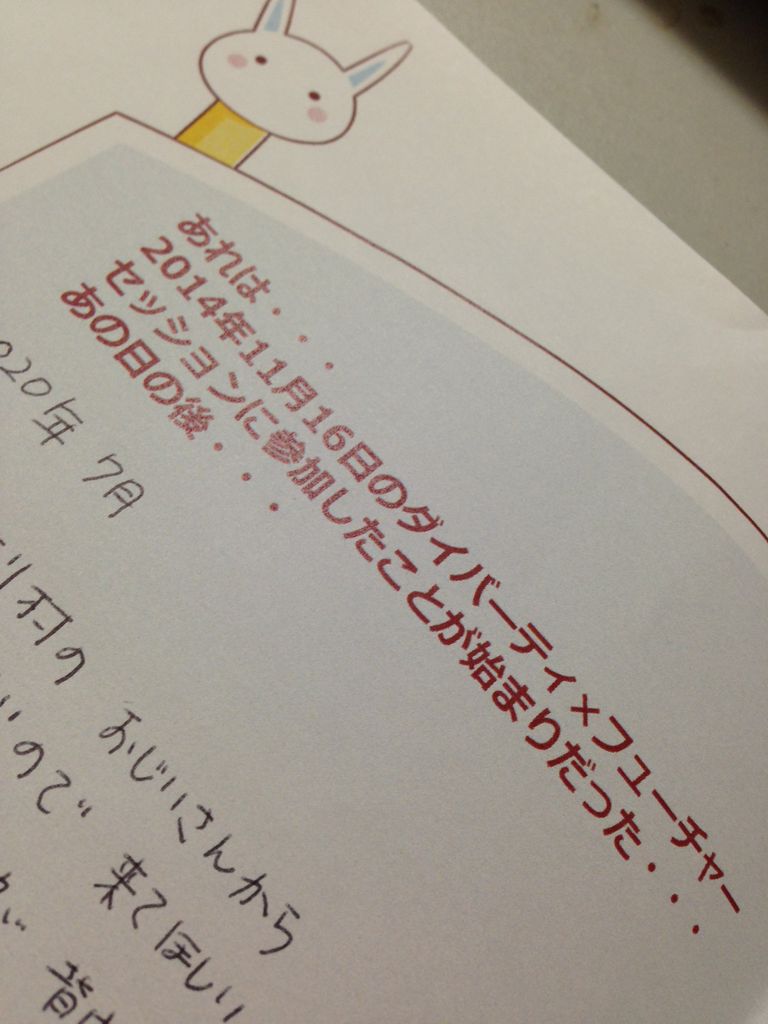 あれは・・・
2014年11月16日のダイバーティ×フューチャー
セッションに参加したことが始まりだった・・・
あの日の後・・・
020年 7月
村の おじいさんから
ので 来てほしい
が